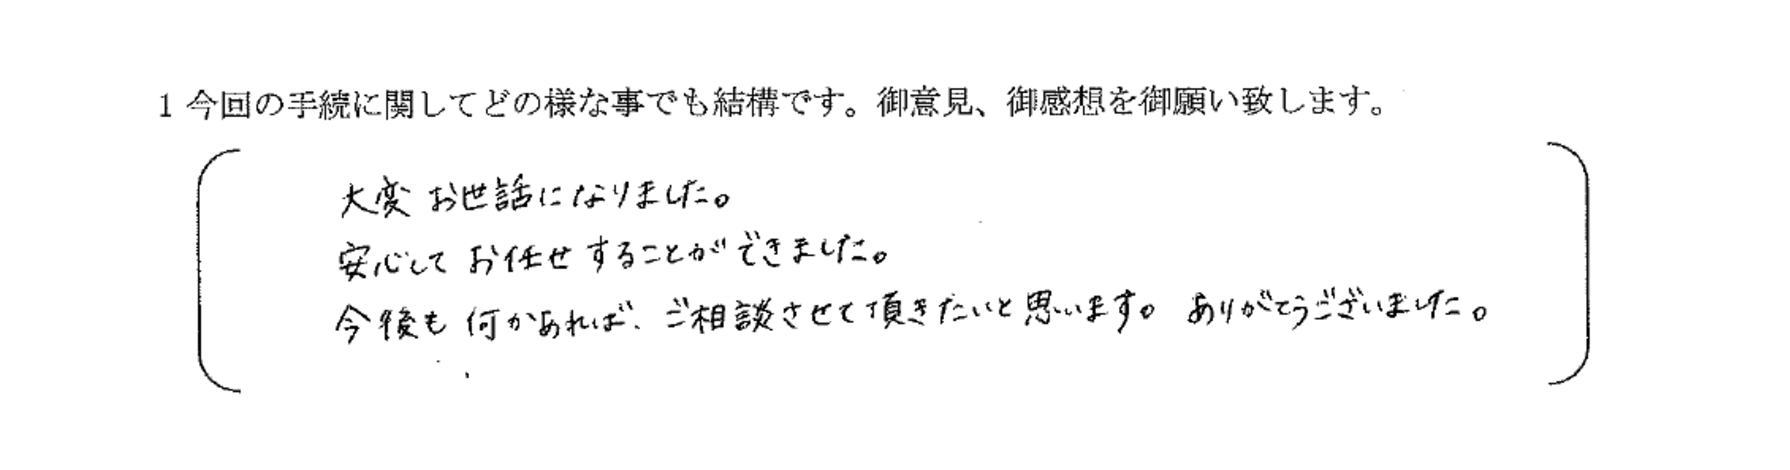 1 今回の手続に関してどの様な事でも結構です。御意見、御感想を御願い致します。
大変 お世話になりました。
安心して お任せすることができました。
今後も 何かあれば、ご相談させて頂きたいと思います。 ありがとうございました。